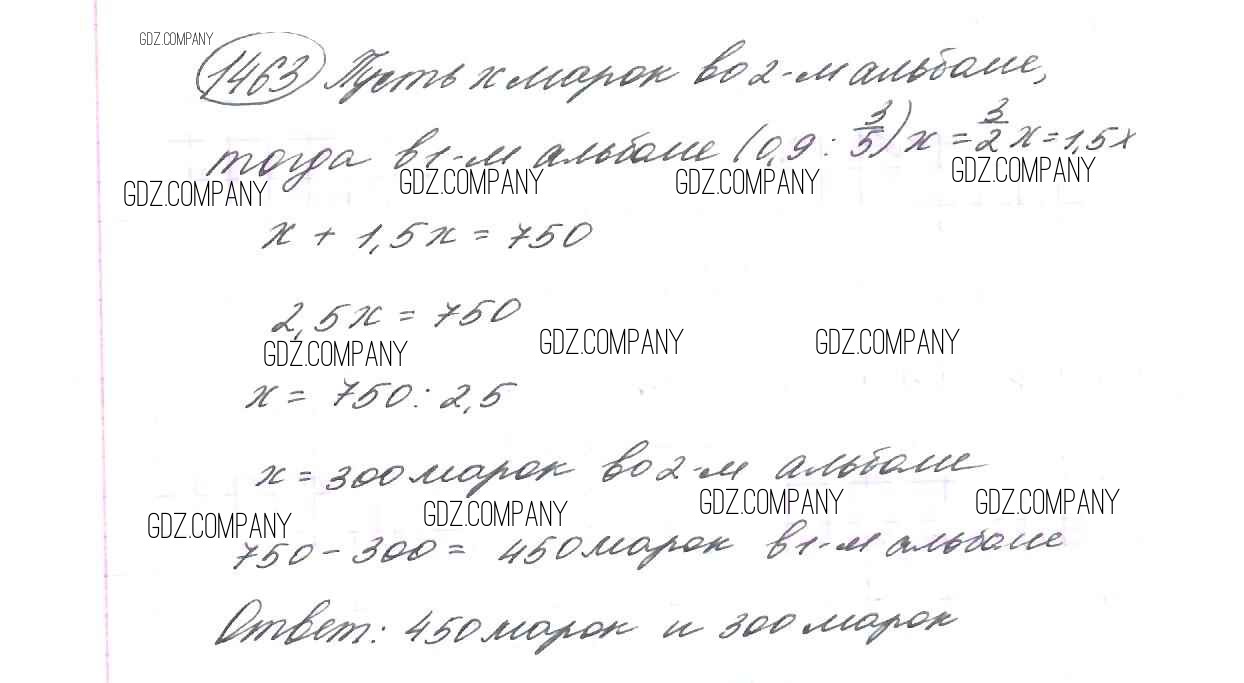 GDZ.COMPANY
1463 Пусть x марок во 2-м альбоме,
тогда в 1-м альбоме (0,9 : 3/5) x = 3/2 x = 1,5x
GDZ.COMPANY GDZ.COMPANY GDZ.COMPANY GDZ.COMPANY
x + 1,5x = 750
2,5x = 750
GDZ.COMPANY GDZ.COMPANY GDZ.COMPANY
x = 750 : 2,5
x = 300 марок во 2-м альбоме
GDZ.COMPANY GDZ.COMPANY GDZ.COMPANY GDZ.COMPANY
750 - 300 = 450 марок в 1-м альбоме
Ответ: 450 марок и 300 марок